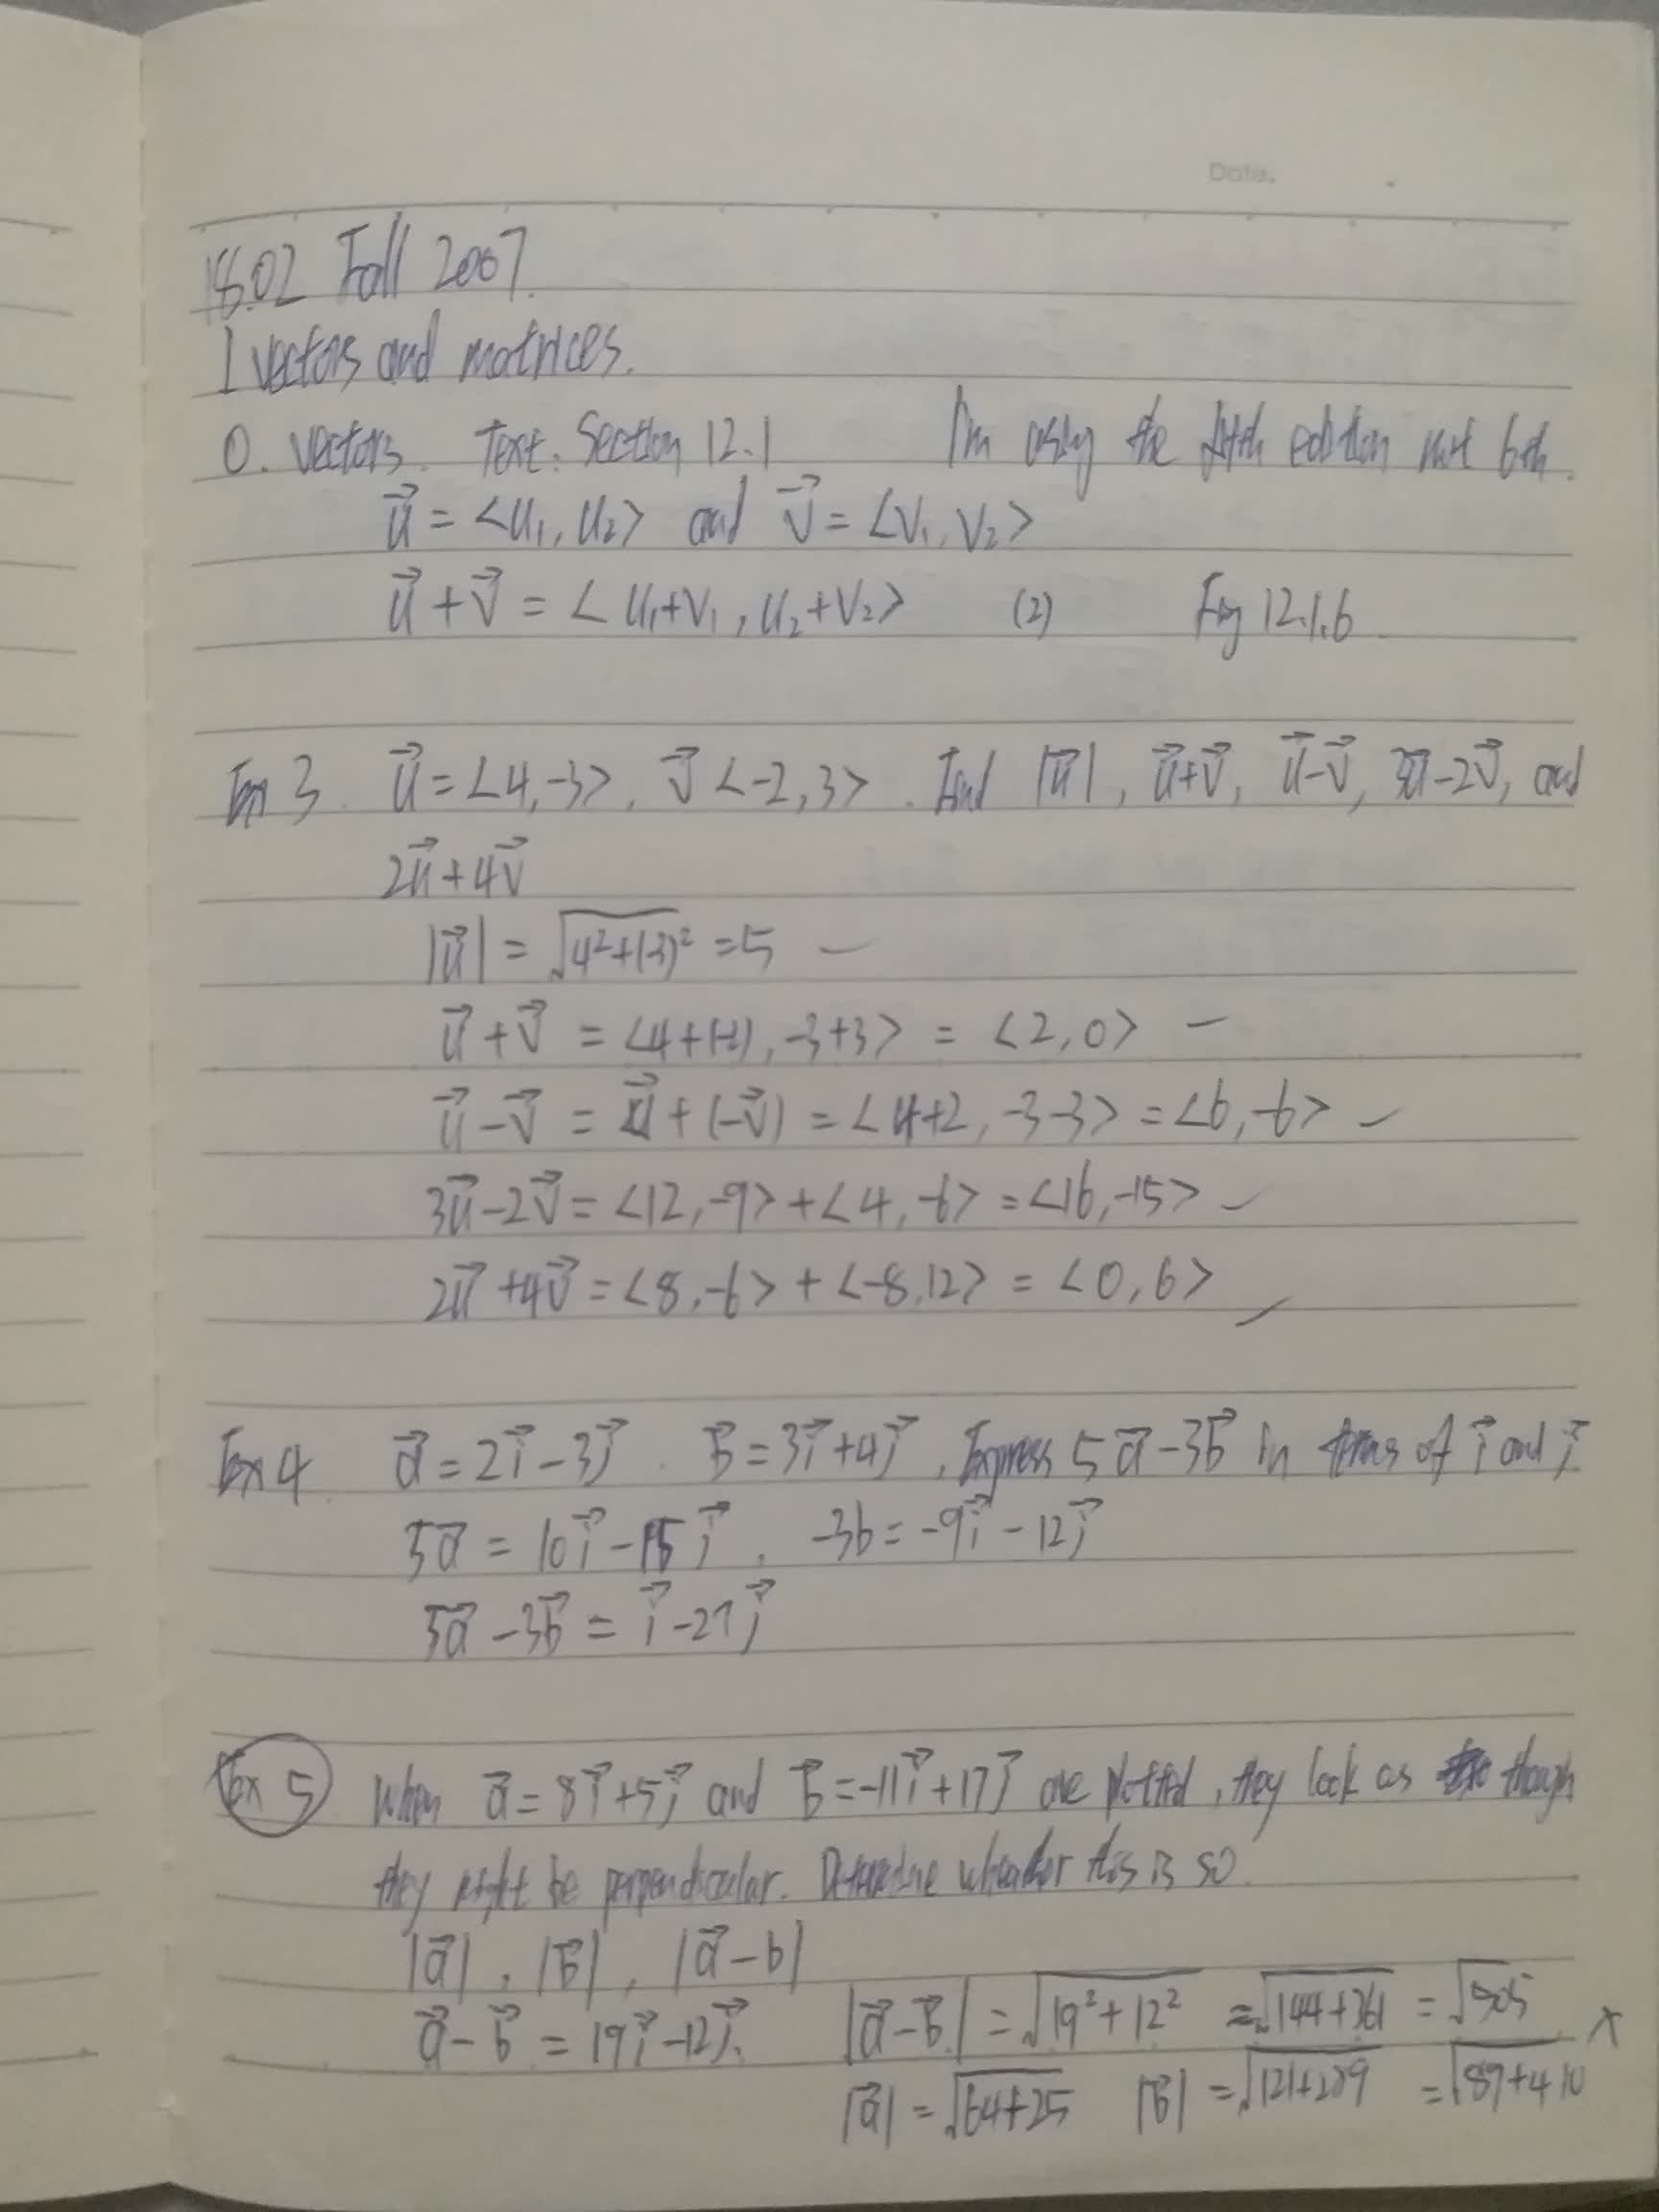 Date.
18.02 Fall 2007.
I vectors and matrices.
0. vectors. Text: Section 12.1 I'm using the fifth edition not 6th.
u⃗ = <u₁, u₂> and v⃗ = <v₁, v₂>
u⃗ + v⃗ = < u₁+v₁, u₂+v₂> (2) Fig 12.1.6
Ex 3. u⃗ = <4, -3>, v⃗ <-2, 3>. Find |u⃗|, u⃗+v⃗, u⃗-v⃗, 3u⃗-2v⃗, and
2u⃗+4v⃗
|u⃗| = √(4²+(-3)²) = 5 –
u⃗ + v⃗ = <4+(-2), -3+3> = <2, 0> –
u⃗ - v⃗ = u⃗ + (-v⃗) = <4+2, -3-3> = <6, -6> ✓
3u⃗-2v⃗ = <12, -9> + <4, -6> = <16, -15> ✓
2u⃗ +4v⃗ = <8, -6> + <-8, 12> = <0, 6> ✓
Ex 4. a⃗ = 2i⃗ - 3j⃗. b⃗ = 3i⃗+4j⃗, Express 5a⃗-3b⃗ in terms of i⃗ and j⃗.
5a⃗ = 10i⃗ - 15j⃗, -3b = -9i⃗ - 12j⃗
5a⃗ - 3b⃗ = i⃗ - 27j⃗
Ex 5 When a⃗ = 8i⃗+5j⃗ and b⃗ = -11i⃗+17j⃗ are plotted, they look as though
they might be perpendicular. Determine whether this is so.
|a⃗|, |b⃗|, |a⃗-b|
a⃗ - b⃗ = 19i⃗ - 12j⃗. |a⃗-b⃗| = √(19²+12²) = √(144+361) = √505 ×
|a⃗| = √(64+25) |b⃗| = √(121+289) = √(89+410)